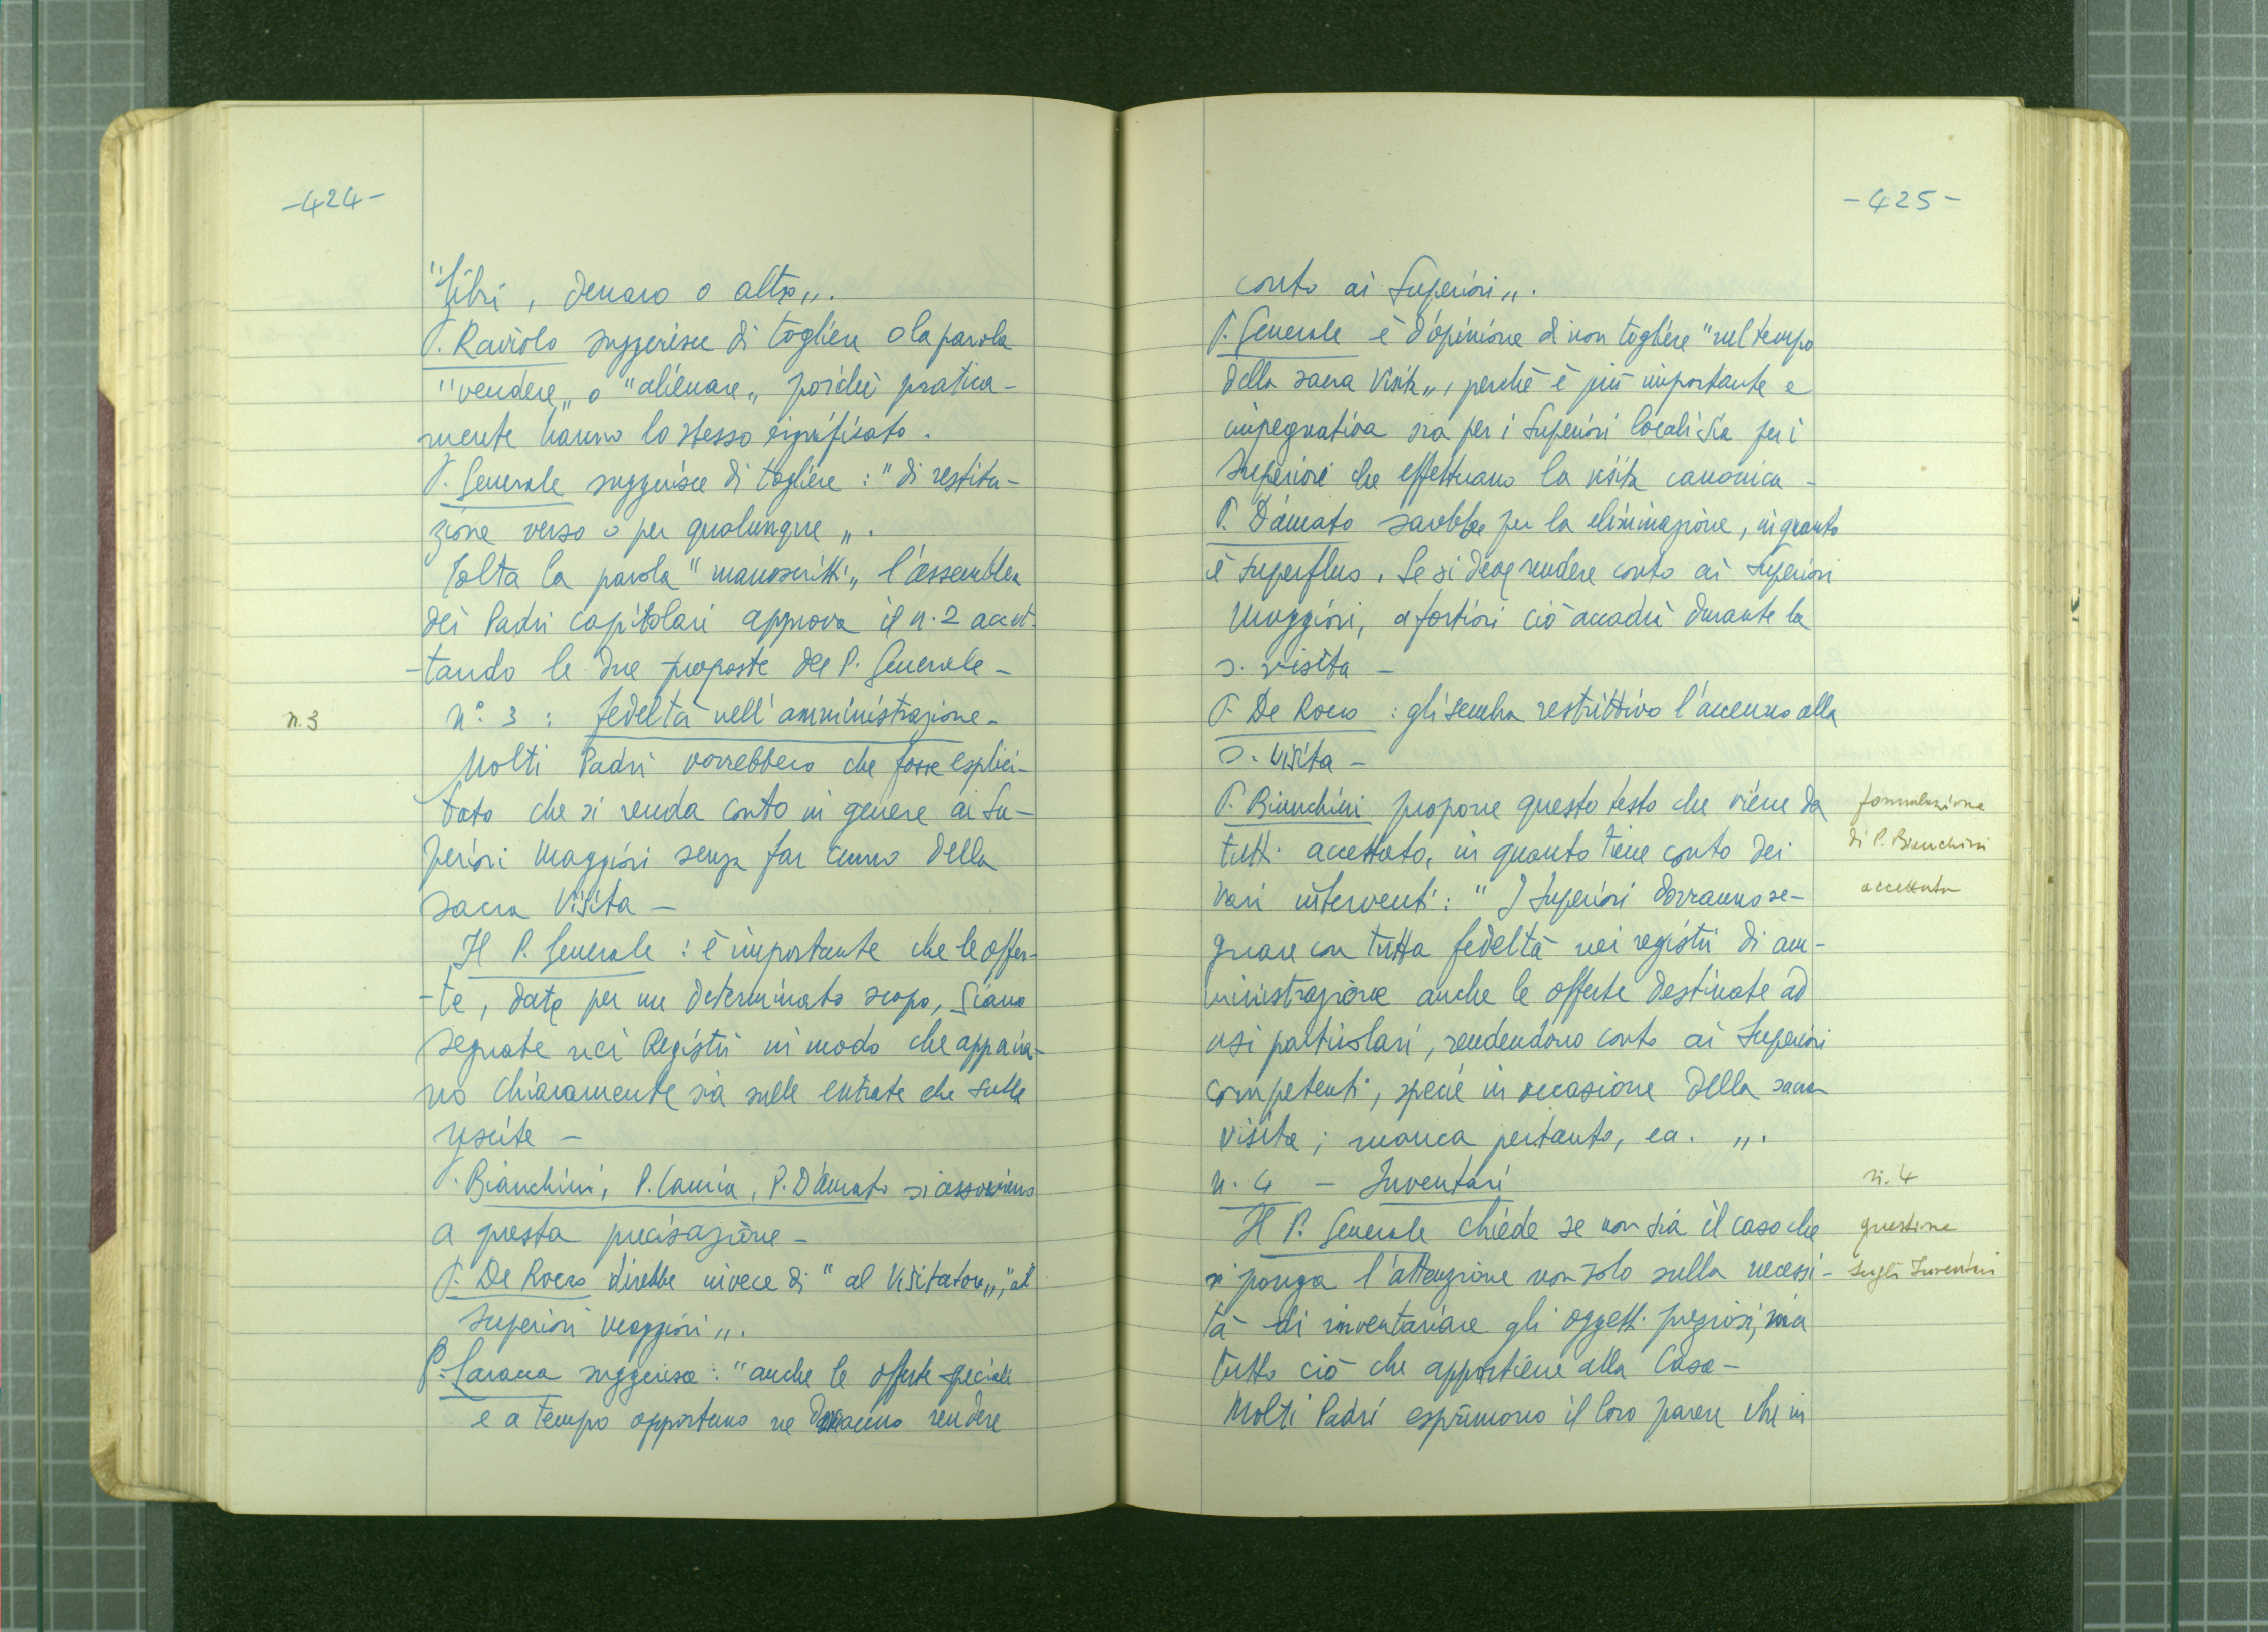 -424-
"libri, denaro o altro„.
P. Raviolo suggerisce di togliere o la parola
"vendere„ o "alienare„ poichè pratica-
mente hanno lo stesso significato.
P. Generale suggerisce di togliere: "di restitu-
zione verso o per qualunque„.
Tolta la parola "manoscritti„ l'assemblea
dei Padri capitolari approva il n. 2 accet-
-tando le due proposte del P. Generale -
n.3
n° 3 : fedeltà nell'amministrazione -
Molti Padri vorrebbero che fosse esplici-
tato che si renda conto in genere ai Su-
periori Maggiori senza far cenno della
sacra Visita -
Il P. Generale : è importante che le offer-
-te, date per un determinato scopo, siano
segnate nei Registri in modo che appaia-
no chiaramente sia sulle entrate che sulle
uscite -
P. Bianchini, P. Camia, P. D'Amato si associano
a questa precisazione -
P. De Rocco direbbe invece di "al Visitatore„, "ai
superiori maggiori„.
P. Saracca suggerisce: "anche le offerte speciali
e a tempo opportuno ne dovranno rendere
-425-
conto ai Superiori„.
P. Generale è d'opinione di non togliere "nel tempo
della sacra Visita„, perchè è più importante e
impegnativa sia per i Superiori locali sia per i
Superiori che effettuano la visita canonica -
P. D'Amato sarebbe per la eliminazione, in quanto
è superfluo. Se si deve rendere conto ai Superiori
Maggiori, a fortiori ciò accadrà durante la
s. visita -
P. De Rocco : gli sembra restrittivo l'accenno alla
s. Visita -
P. Bianchini propone questo testo che viene da
tutti accettato, in quanto tiene conto dei
vari interventi: "I Superiori dovranno se-
gnare con tutta fedeltà nei registri di am-
ministrazione anche le offerte destinate ad
usi particolari, rendendono conto ai Superiori
competenti, specie in occasione della sacra
visita; manca pertanto, ea. „.
formulazione
di P. Bianchini
accettata
n. 4 - Inventari
n. 4
Il P. Generale chiede se non sia il caso che
si ponga l'attenzione non solo sulla necessi-
tà di inventariare gli oggetti preziosi, ma
tutto ciò che appartiene alla Casa -
Molti Padri esprimono il loro parere che in
questione
sugli Inventari